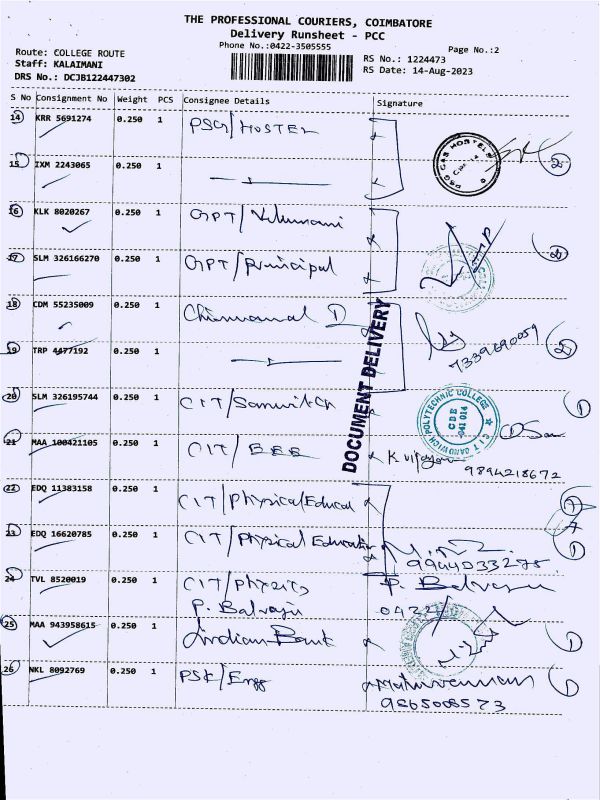 THE PROFESSIONAL COURIERS, COIMBATORE
Delivery Runsheet - PCC
Phone No.:0422-3505555
Page No.:2
Route: COLLEGE ROUTE
Staff: KALAIMANI
DRS No.: DCJB122447302
RS No.: 1224473
RS Date: 14-Aug-2023
S No Consignment No Weight PCS Consignee Details Signature
14 KRR 5691274 0.250 1 PSG/HOSTEL
15 IXM 2243065 0.250 1
2
16 KLK 8020267 0.250 1 GPT/
17 SLM 326166270 0.250 1 GPT/Principal
2
18 CDM 55235009 0.250 1 D
19 TRP 4477192 0.250 1
7339690059
2
DOCUMENT DELIVERY
20 SLM 326195744 0.250 1 CIT/Sanwitch
CIT SANDWICH POLYTECHNIC COLLEGE
CDE
641 014
1
21 MAA 100421105 0.250 1 CIT/EEE K
9894218672
22 EDQ 11383158 0.250 1 CIT/Physical Educat
23 EDQ 16620785 0.250 1 CIT/Physical Education
9944033275
1
24 TVL 8520019 0.250 1 CIT/Physics
P. Balraju
25 MAA 943958615 0.250 1 Indian Bank
1
26 NKL 8092769 0.250 1 PSG/Engg
9865008573
1